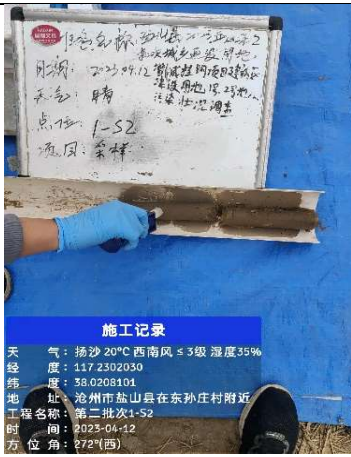 日期：2023.04.12
天气：晴
点位：1-S2
项目：采样
施工记录
天 气：扬沙 20℃ 西南风 ≤ 3级 湿度35%
经 度：117.2302030
纬 度：38.0208101
地 址：沧州市盐山县在东孙庄村附近
工程名称：第二批次1-S2
时 间：2023-04-12
方 位 角：272°(西)